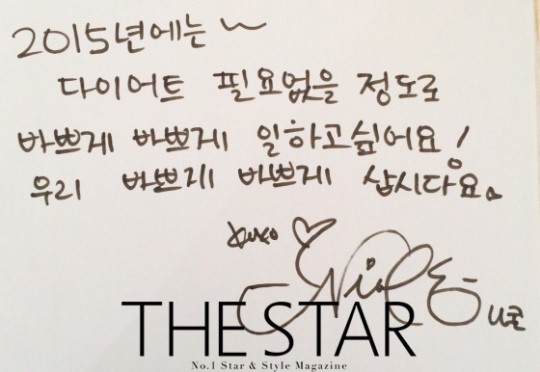 2015년에는~
다이어트 필요없을 정도로
바쁘게 바쁘게 일하고싶어요!
우리 바쁘게 바쁘게 삽시다요.
THE STAR
No.1 Star & Style Magazine